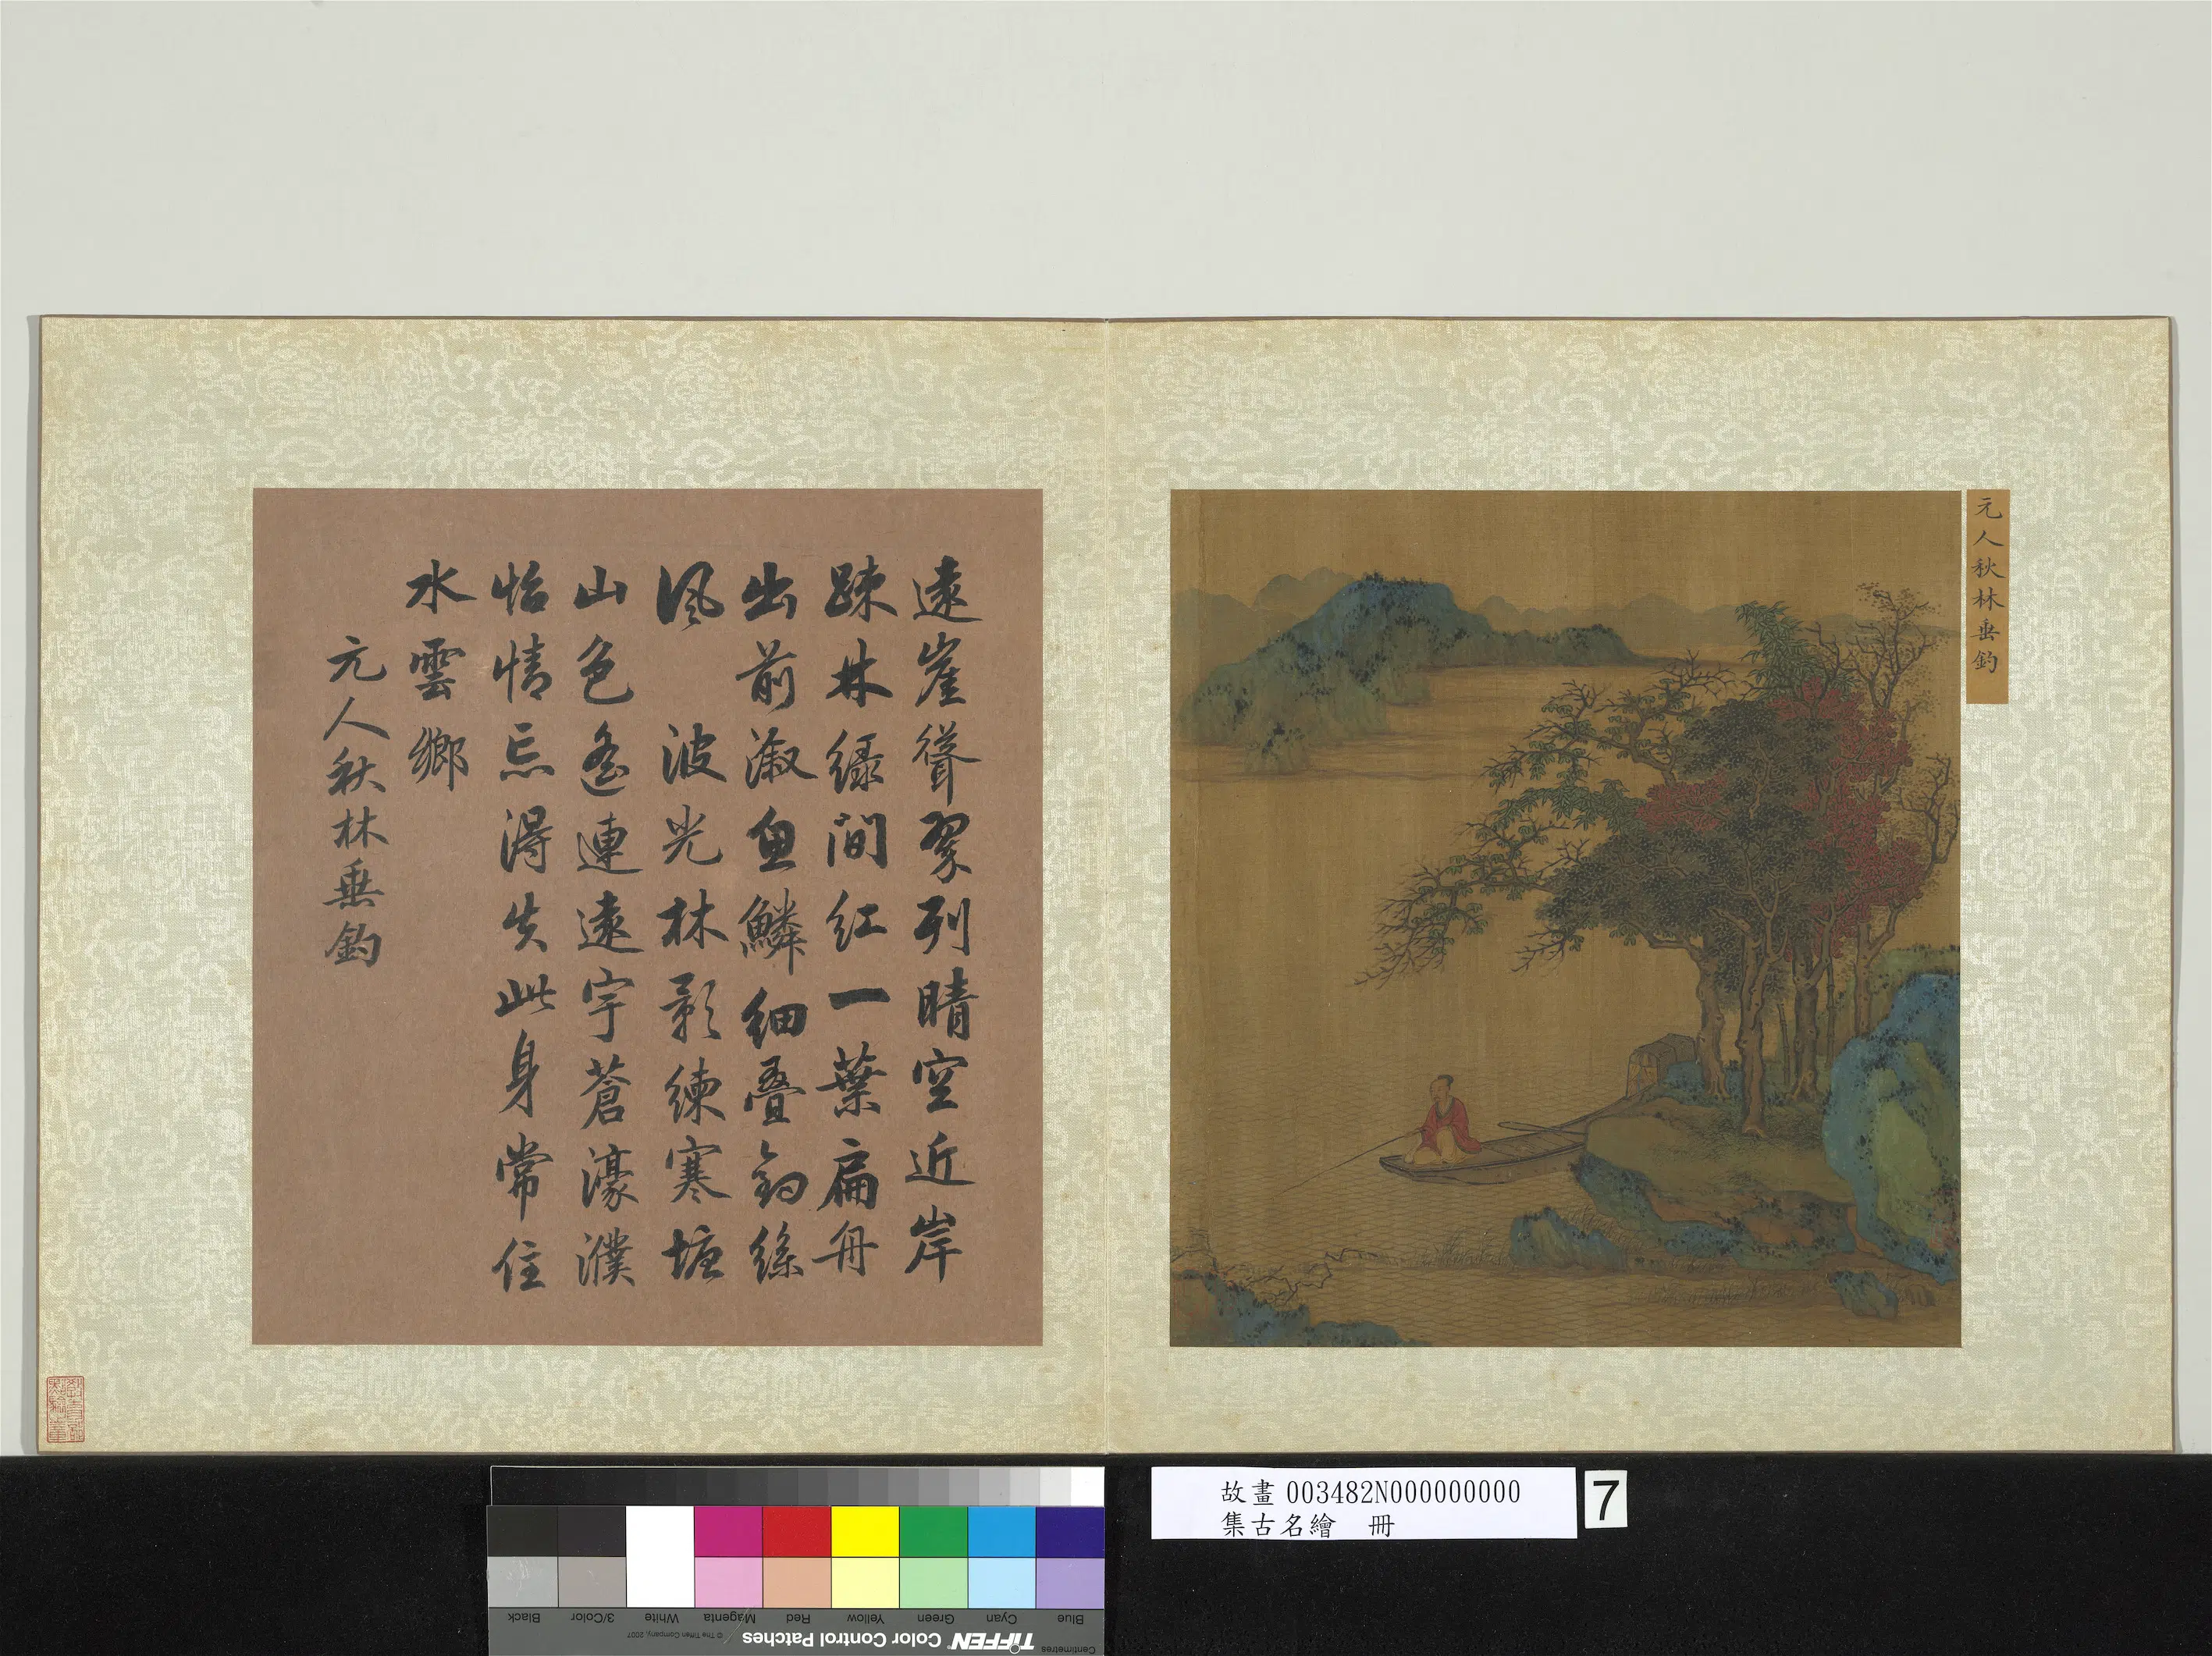 元人秋林垂釣
遠崖聳翠列晴空近岸
踈林綠間紅一葉扁舟
出前溆魚鱗細疊釣絲
風 波光林影練寒塘
山色遙連遠宇蒼濠濮
怡情忘得失此身常住
水雲鄉
元人秋林垂釣
故畫003482N000000000
集古名繪 冊
7
Blue
Cyan
Green
Yellow
Red
Magenta
White
3/Color
Black
Centimetres
TIFFEN Color Control Patches
© The Tiffen Company, 2007